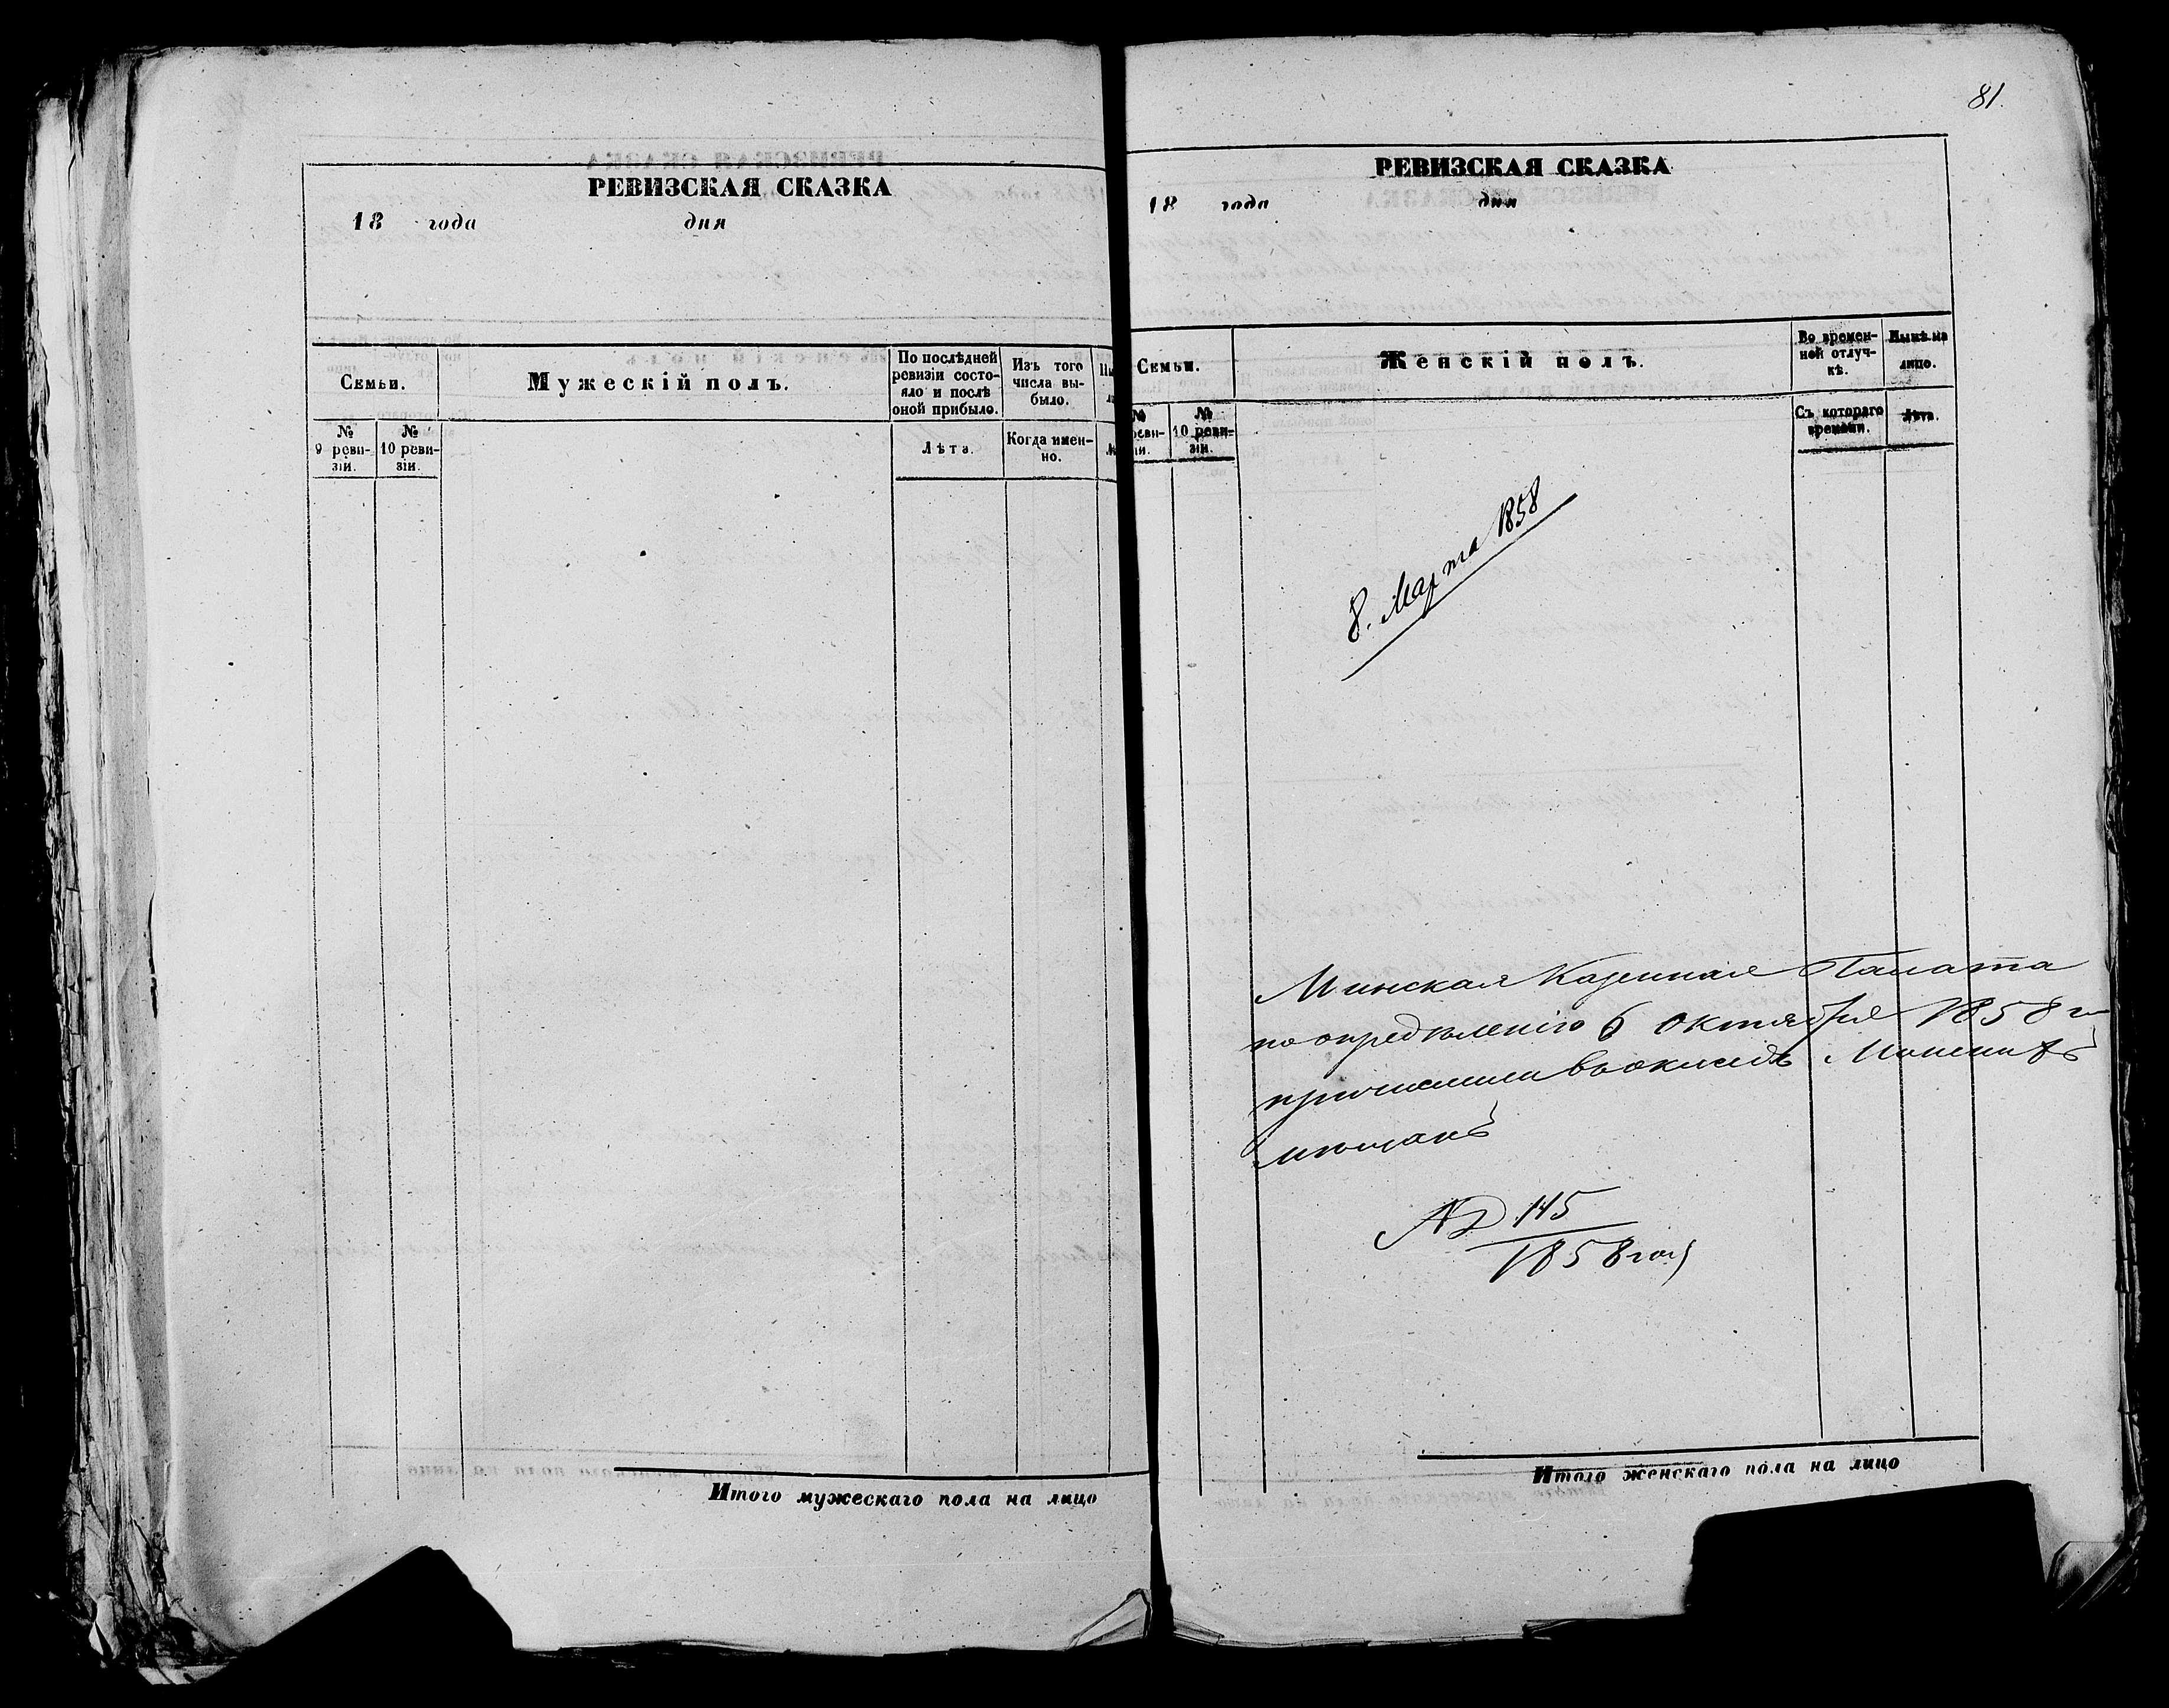 РЕВИЗСКАЯ СКАЗКА
18 года дня
Семьи.
Мужескій полъ.
По послѣдней
ревизіи состо-
яло и послѣ
оной прибыло.
Изъ того
числа вы-
было.
№
9 реви-
зіи.
№
10 реви-
зіи.
Лѣта.
Когда имен-
но.
Итого мужескаго пола на лицо
81.
РЕВИЗСКАЯ СКАЗКА
18 года дня
Семьи.
Женскій полъ.
Во времен-
ной отлуч-
кѣ.
Нынѣ на
лицо.
№
10 реви-
зіи.
Съ котораго
времени.
Лѣта.
8. Марта 1858
Минская Казенная Палата
по опредѣленію 6 Октября 1858 г
причислила въ окладъ
мѣщанъ
№ 145
1858 год
Итого женскаго пола на лицо